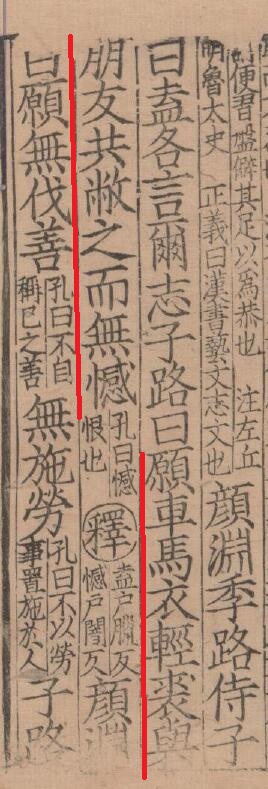 便習盤僻其足以爲恭也 注左丘
明魯太史 正義曰漢書藝文志文也
顔淵季路侍子
曰盍各言爾志子路曰願車馬衣輕裘與
朋友共敝之而無憾
孔曰憾
恨也
釋
盍户臘反
憾户闇反
顔淵
曰願無伐善
孔曰不自
稱己之善
無施勞
孔曰不以勞
事置施於人
子路